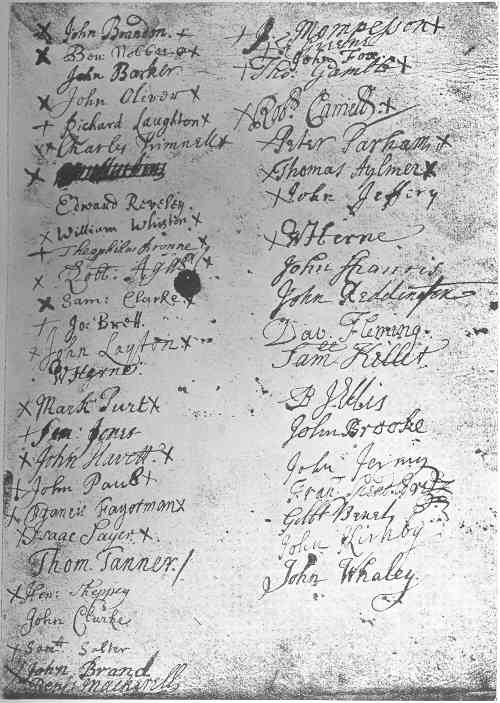 John Brandon.
Ben:
John Barker
John Oliver
Richard Laughton
Charles Trimnell
Edward Reveley.
William Whiston
Theophilus Bronne
Robt. Agur
Sam: Clarke
Jo: Brett.
John Layton
WHerne
Mark Purt
Jones
John Havett.
John Paul
Francis Fagotman
Isaac Sayer.
Thom. Tanner.
Hen: Sheppey
John Clarke
Saml Salter
John Brand
Denis
Mompesson
John Fox
Tho: Gamble
Robt. Camell.
Peter Parham
Thomas Aylmer
John Jeffery
WHerne
John Francis
John Reddington
Dav. Fleming.
Saml Killet
B Jellis
John Brooke
John Jermy
Fran:
John Kirkby
John Whaley.